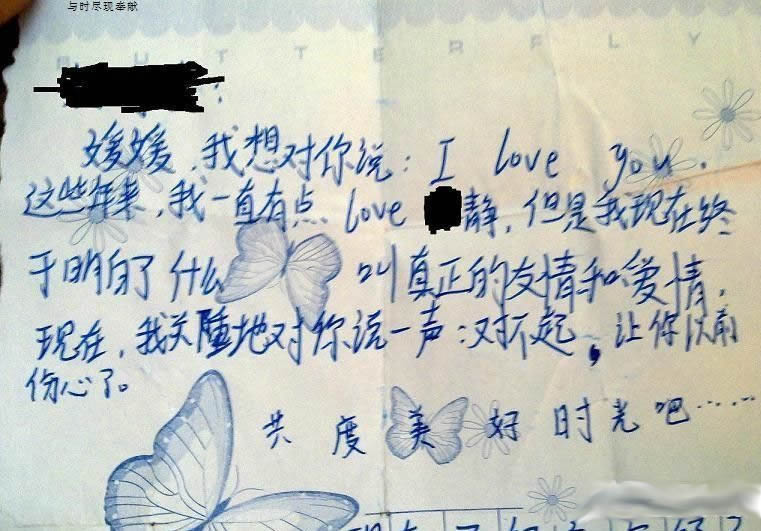 与时尽现奉献
BUTTERFLY
媛媛,我想对你说:I love you.
这些年来,我一直有点 love 静,但是我现在终
于明白了什么 叫真正的友情和爱情,
现在,我关  地对你说一声:对不起,让你以前
伤心了。
共度美好时光吧……